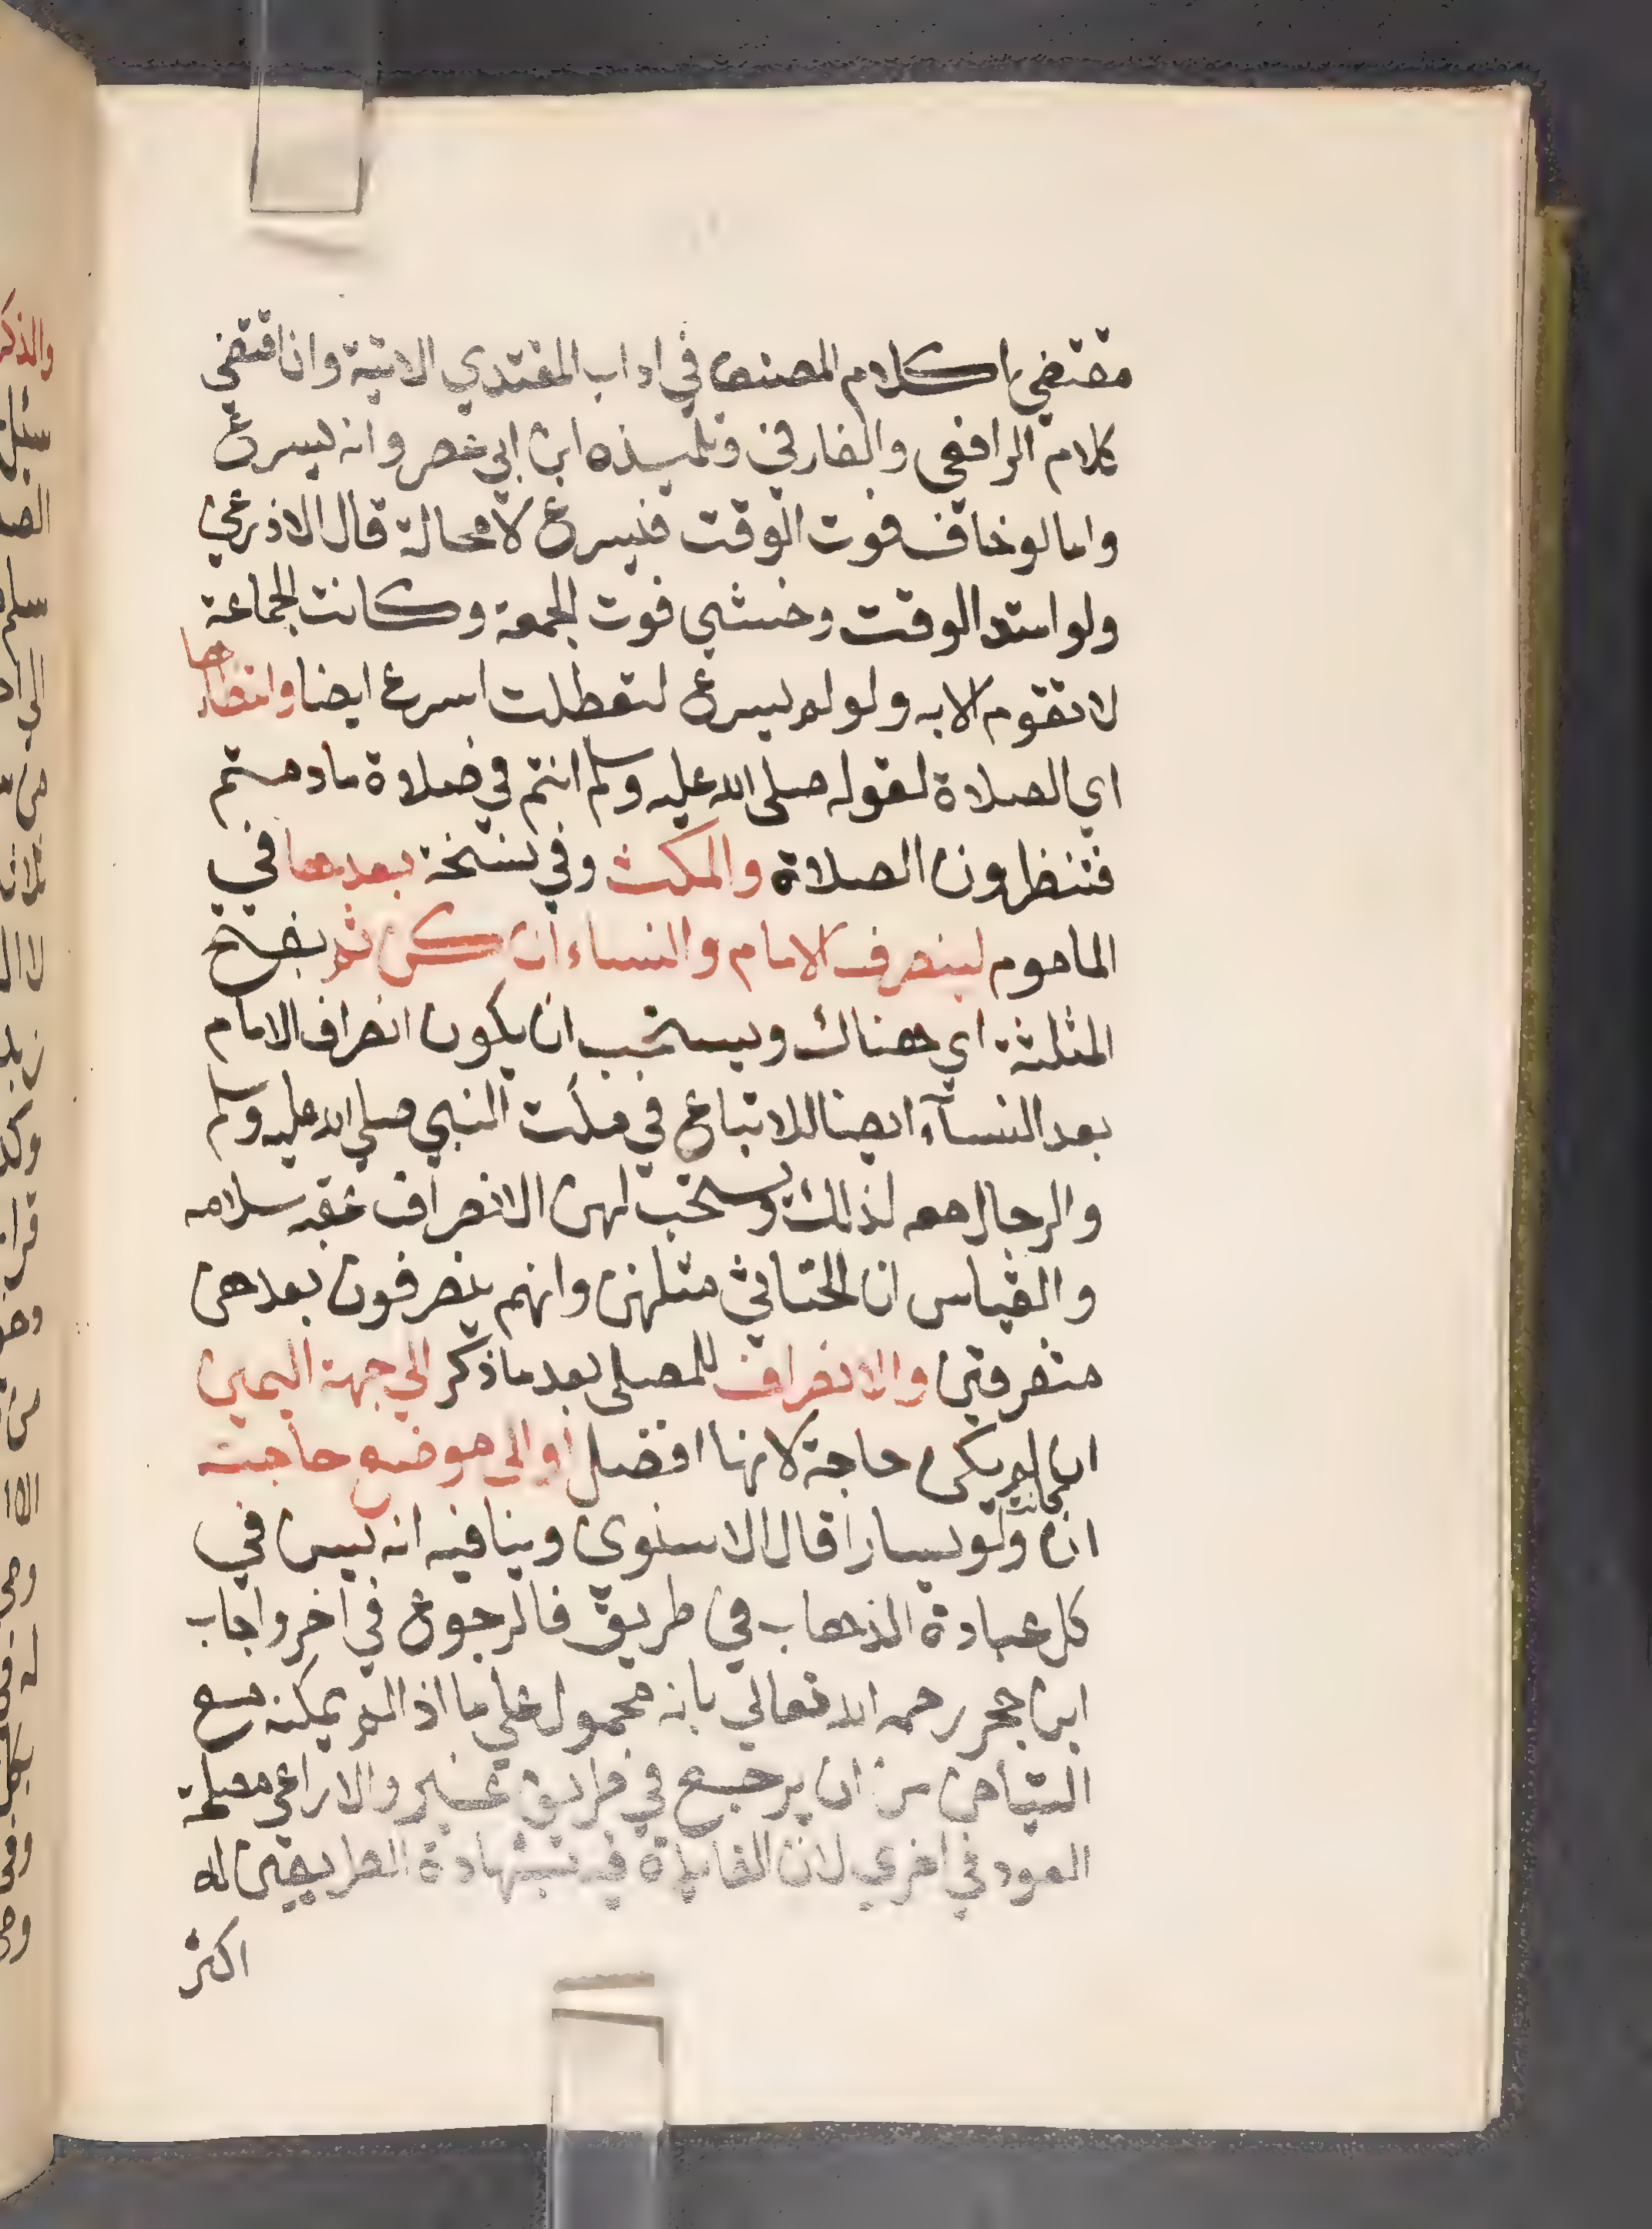 مقتضي كلام المصنف في اداب المقتدي الاتية وان اقتضي
كلام الرافعي والفارقي وتلميذه ابن ابي عصرو انه ليسرع
واما لو خاف فوت الوقت فيسرع لا محالة قال الاذرعي
ولو امتد الوقت وخشي فوت الجمعة وكانت الجماعة
لا تقوم الا به ولو لم يسرع لتعطلت اسرع ايضا وانتظارها
اي الصلاة لقوله صلى الله عليه وسلم انتم في صلاة ما دمتم
تنتظرون الصلاة والمكث وفي نسخة بعدها في
الماموم لينصرف الامام والنساء ان كن ثم بفتح
المثلثة اي هناك ويستحب ان يكون انصراف الامام
بعد النسآء ايضا للاتباع في مكث النبي صلى الله عليه وسلم
والرجال معه لذلك ويستحب لهن الانصراف عقب سلامه
والقياس ان الخناثي مثلهن وانهم ينصرفون بعدهن
متفرقين والانصراف للمصلي بعد ما ذكر الي جهة اليمين
ان لم يكن حاجة لانها افضل او الي موضع حاجت
ان كانت ولو يسارا قال الاسنوي وينافيه انه يسن في
كل عبادة الذهاب في طريق فالرجوع في اخر واجاب
ابن حجر رحمه الله تعالي بانه محمول علي ما اذا لم يمكنه مع
التيامن من ان يرجع في طريق غير والا راعي مصلحة
العود في اخري لان الفايدة فيه بشهادة الطريقين له
اكثر